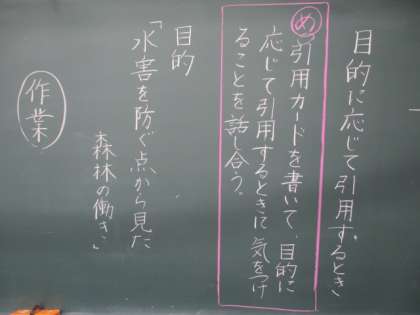 目的に応じて引用するとき
め 引用カードを書いて、目的に
応じて引用するときに気をつけ
ることを話し合う。
目的
「水害を防ぐ点から見た
森林の働き」
作業